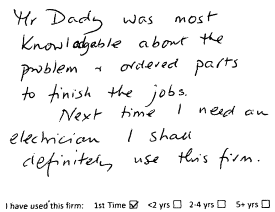 Mr Dady was most
knowledgable about the
problem + ordered parts
to finish the jobs.
Next time I need an
electrician I shall
definitely use this firm.
I have used this firm: 1st Time ☑ <2 yrs ☐ 2-4 yrs ☐ 5+ yrs ☐